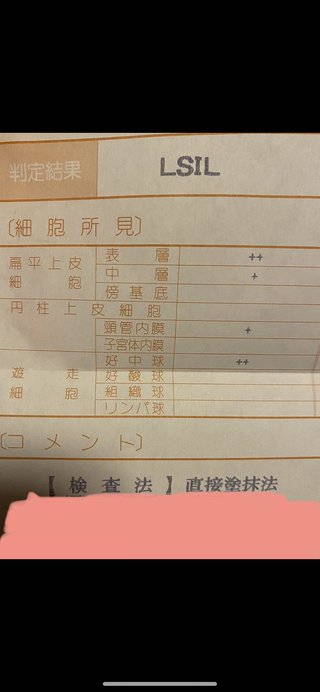 判定結果 LSIL
〔細胞所見〕
扁平上皮細胞 表層 ++
中層 +
傍基底
円柱上皮細胞
頸管内膜 +
子宮体内膜
遊走細胞 好中球 ++
好酸球
組織球
リンパ球
〔コメント〕
【検査法】直接塗抹法